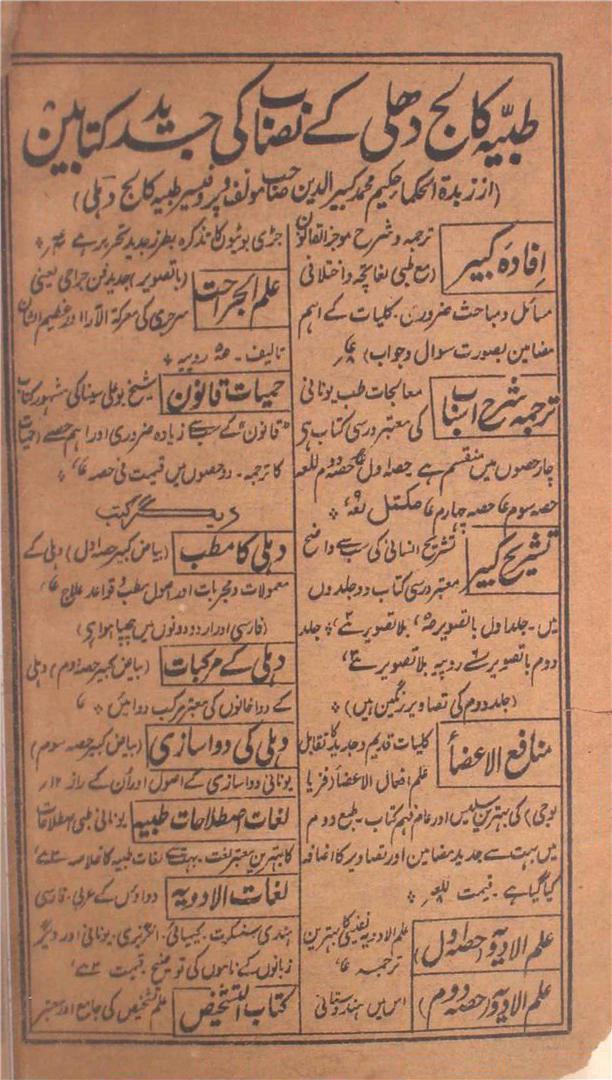 طبیہ کالج دھلی کے نصاب کی جدید کتابیں
(از زبدۃ الحکما حکیم محمد کبیر الدین صاحب مولف و پروفیسر طبیہ کالج دہلی)
افادہ کبیر
ترجمہ و شرح موجز القانون
(مع طبی لغائچہ و اختلافی
مسائل و مباحث ضروری۔ کلیات کے اہم
مضامین بصورت سوال و جواب)
ترجمہ شرح اسباب
معالجات طب یونانی
کی معتبر درسی کتاب ہی
چار حصوں میں منقسم ہے حصہ اول حصہ دوم
حصہ سوم حصہ چہارم مکمل
تشریح کبیر
تشریح انسانی کی سب سے واضح
معتبر درسی کتاب دو جلدوں
میں۔ جلد اول باتصویر بلا تصویر جلد
دوم باتصویر روپیہ بلا تصویر
(جلد دوم کی تصاویر رنگین ہیں)
منافع الاعضأ
کلیات قدیم و جدید کا تقابل
علم افعال الاعضأ (فزیا
لوجی) کی بہترین سلیس اور عام فہم کتاب۔ طبع دوم
میں بہت سے جدید مضامین اور تصاویر کا اضافہ
کیا گیا ہے۔ قیمت
علم الادویہ (حصہ اول)
علم الادویہ نفیسی کا بہترین
ترجمہ
علم الادویہ (حصہ دوم)
اس میں ہندوستانی
جڑی بوٹیوں کا تذکرہ بطرز جدید تحریر ہے
علم الجراحت
(باتصویر) جدید فن جراحی یعنی
سرجری کی معرکۃ الآرا اور عظیم الشان
تالیف۔ روپیہ
حمیات قانون
شیخ بو علی سینا کی مشہور کتاب
"قانون" کے سب سے زیادہ ضروری اور اہم حصے (حمیات)
کا ترجمہ۔ دو حصوں میں قیمت فی حصہ
دیگر کتب
دہلی کا مطب
(بیاض کبیر حصہ اول) دہلی کے
معمولات و مجربات اور اصول مطب و قواعد علاج
(فارسی اور اردو دونوں میں چھپا ہوا ہی)
دہلی کے مرکبات
(بیاض کبیر حصہ دوم) دہلی
کے دواخانوں کی معتبر مرکب دوائیں
دہلی کی دواسازی
(بیاض کبیر حصہ سوم)
یونانی دواسازی کے اصول اور اُن کے راز ۱۲؍
لغات اصطلاحات طبیہ
یونانی طبی اصطلاحات
کا بہترین معتبر لغت۔ بہت سے لغات طبیہ کا خلاصہ
لغات الادویہ
دواؤں کے عربی۔ فارسی
ہندی سنسکرت۔ کیمیائی۔ انگریزی۔ یونانی اور دیگر
زبانوں کے ناموں کی توضیح۔ قیمت
کتاب التشخیص
علم تشخیص کی جامع اور معتبر